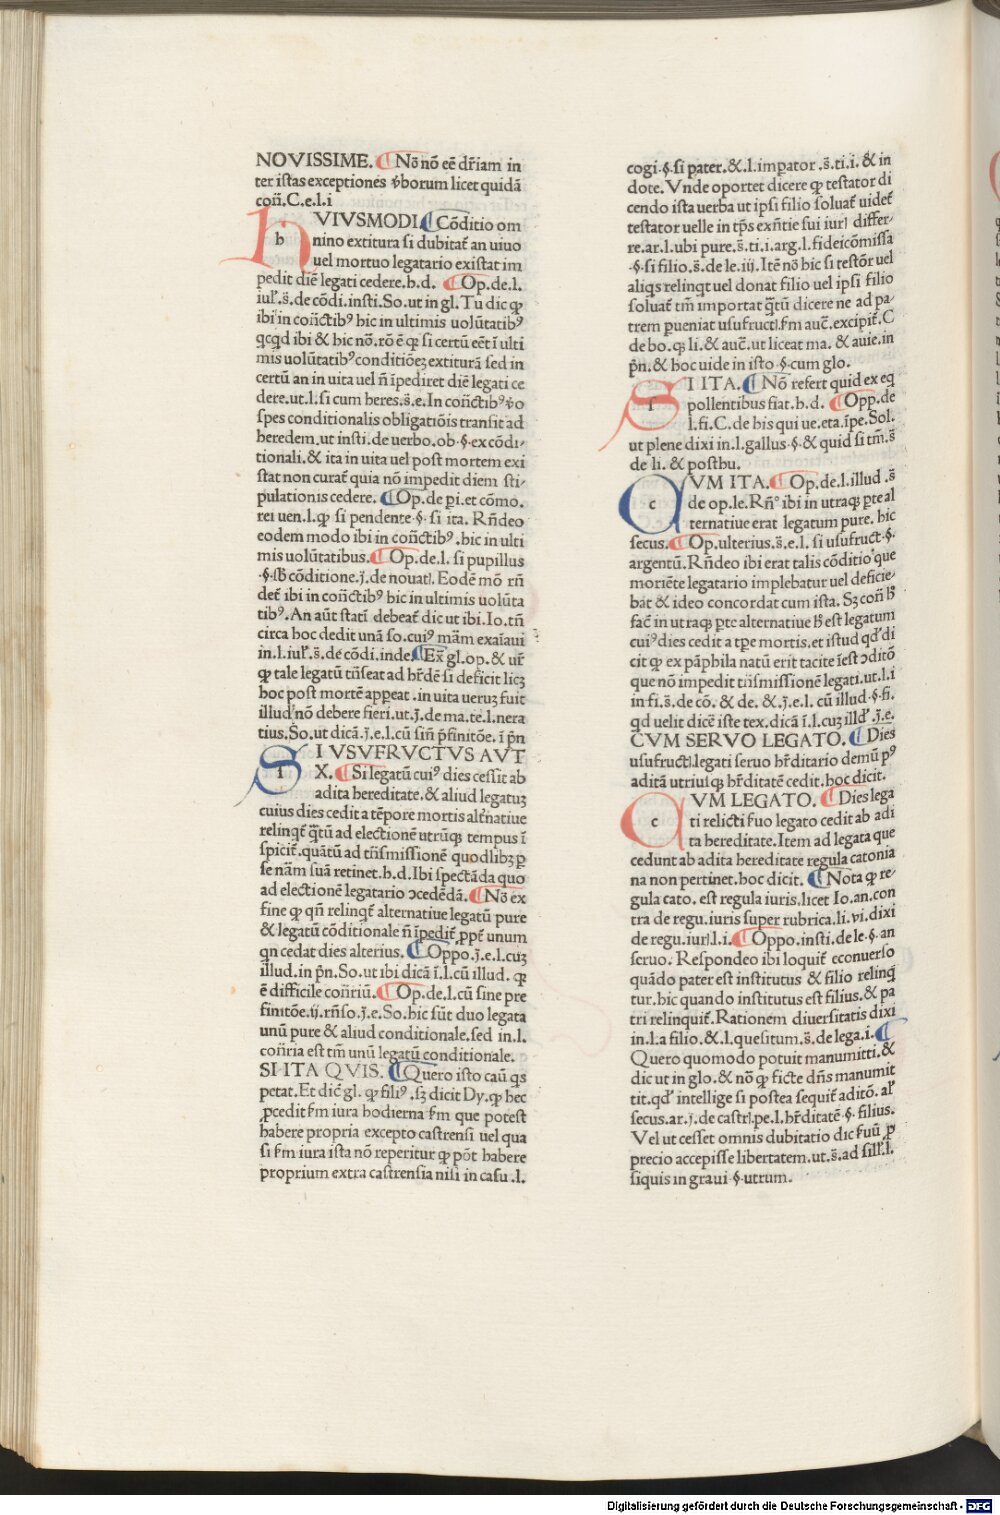 NOVISSIME. ¶ Nō nō eē dr̄iam in
ter istas exceptiones v̄borum licet quidā
con̄. C.e.l.i
h VIVSMODI. ¶ Cōditio om
nino extitura si dubitat̄ an uiuo
uel mortuo legatario existat im
pedit diē legati cedere. h.d. ¶ Op.de.l.
iul'.s̄.de cōdi.insti. So. ut in gl. Tu dic ꝙ
ibi in con̄ctibꝰ hic in ultimis uolūtatibꝰ
qcqd ibi & hic nō. rō ē ꝙ si certū eēt ī ulti
mis uolūtatibꝰ conditiōeꝫ extiturā sed in
certū an in uita uel n̄ īpediret diē legati ce
dere.ut.l.si cum heres.s̄.e. In con̄ctibꝰ v̄o
spes conditionalis obligatiōis transit ad
heredem.ut insti.de uerbo.ob.§.ex cōdi/
tionali. & ita in uita uel post mortem exi
stat non curat̄ quia nō impedit diem sti/
pulationis cedere. ¶ Op.de pi.et cōmo.
rei uen.l.ꝙ si pendente.§.si ita. Rn̄deo
eodem modo ibi in con̄ctibꝰ. hic in ulti
mis uolūtatibus. ¶ Op.de.l. si pupillus
.§.sb̄ cōditione.j̄.de nouatl. Eodē mō rn̄
det̄ ibi in con̄ctibꝰ hic in ultimis uolūta
tibꝰ. An aūt statī debeat̄ dic ut ibi. Io. tn̄
circa hoc dedit unā so. cuiꝰ mām exaīaui
in.l.iul'.s̄.de cōdi.inde. ¶ Ex̄ gl.op. & ur̄
ꝙ tale legatū tn̄seat ad hr̄dē si deficit licꝫ
hoc post mortē appeat. in uita ueruꝫ fuit
illud nō debere fieri.ut.j̄.de ma.te.l.nera
tius. So. ut dicā.j̄.e.l.cū sin̄ p̄finitōe. ī pn̄
S I VSVFRVCTVS AVT
X. ¶ Si legatū cuiꝰ dies cessit ab
adita hereditate. & aliud legatuꝫ
cuius dies cedit a tēpore mortis alt̄natiue
relinqt̄ q̄tū ad electionē utrūqꝫ tempus ī
spicit̄. quātū ad tn̄smissionē quodlibꝫ ꝑ
se nām suā retinet. h.d. Ibi spectāda quo
ad electionē legatario ↄcedēdā. ¶ Nō ex
fine ꝙ qn̄ relinqt̄ alternatiue legatū pure
& legatū cōditionale n̄ īpedit̄ ꝓpt̄ unum
qn cedat dies alterius. ¶ Oppo.j̄.e.l.cuꝫ
illud. in pn̄. So. ut ibi dicā ī.l.cū illud. ꝙ
ē difficile con̄riū. ¶ Op.de.l.cū sine pre
finitōe.ij.rn̄so.j̄.e. So. hic sūt duo legata
unū pure & aliud conditionale. sed in.l.
con̄ria est tm̄ unū legatū conditionale.
SI ITA QVIS. ¶ Quero isto caū qs
petat. Et dic̄ gl. ꝙ filiꝰ. sꝫ dicit Dy. ꝙ hec
ꝓcedit s̄m iura hodierna s̄m que potest
habere propria excepto castrensi uel qua
si s̄m iura ista nō reperitur ꝙ pōt habere
proprium extra castrensia nisi in casu .l.
cogi.§.si pater. &.l.impator.s̄.ti.i. & in
dote. Vnde oportet dicere ꝙ testator di
cendo ista uerba ut ipsi filio soluat̄ uidet̄
testator uelle in tp̄s exn̄tie sui iurl differ/
re.ar.l.ubi pure.s̄.ti.i.arg.l.fideicōmissa
.§.si filio.s̄.de le.iij. Itē nō hic si testōr uel
aliqs relinqt uel donat filio uel ipsi filio
soluat̄ tm̄ importat q̄tū dicere ne ad pa/
trem pueniat usufructl.s̄m auc̄.excipit̄. C
de bo.qꝫ li. & auc̄.ut liceat ma. & auie.in
pn̄. & hoc uide in isto .§.cum glo.
S I ITA. ¶ Nō refert quid ex eq
pollentibus fiat. h.d. ¶ Opp.de
l.fi. C. de his qui ue.eta.īpe. Sol.
ut plene dixi in.l.gallus.§. & quid si tm̄.s̄
de li. & posthu.
C VM ITA. ¶ Op.de.l.illud.s̄
de op.le. Rn̄° ibi in utraqꝫ pte al
ternatiue erat legatum pure. hic
secus. ¶ Op.ulterius.s̄.e.l. si usufruct.§.
argentū. Rn̄deo ibi erat talis cōditio que
moriēte legatario implebatur uel deficie/
bat & ideo concordat cum ista. Sꝫ con̄ hꝰ
fac̄ in utraqꝫ pte alternatiue hꝰ est legatum
cuiꝰ dies cedit a tp̄e mortis. et istud qd' di
cit ꝙ ex pāphila natū erit tacite īest ↄditō
que nō impedit tn̄smissionē legati.ut.l.i
in fi.s̄.de cō. & de. &.j̄.e.l. cū illud.§.fi.
qd uelit dicē iste tex. dicā ī.l. cuꝫ illd'.j̄.e.
CVM SERVO LEGATO. ¶ Dies
usufructl.legati seruo hr̄ditario demū pꝰ
aditā utriusqꝫ hr̄ditatē cedit. hoc dicit.
C VM LEGATO. ¶ Dies lega
ti relicti s̄uo legato cedit ab adi
ta hereditate. Item ad legata que
cedunt ab adita hereditate regula catonia
na non pertinet. hoc dicit. ¶ Nota ꝙ re/
gula cato. est regula iuris. licet Io.an.con
tra de regu.iuris super rubrica.li.vi.dixi
de regu.iurl.l.i. ¶ Oppo.insti.de le.§.an
seruo. Respondeo ibi loquit̄ econuerso
quādo pater est institutus & filio relinq̄
tur. hic quando institutus est filius. & pa
tri relinquit̄. Rationem diuersitatis dixi
in.l.a filio. &.l.quesitum.s̄.de lega.i. ¶
Quero quomodo potuit manumitti. &
dic ut in glo. & nō ꝙ ficte dn̄s manumit
tit. qd' intellige si postea sequit̄ aditō. al'
secus.ar.j̄.de castrl.pe.l.hr̄ditatē.§.filius.
Vel ut cesset omnis dubitatio dic s̄uū ꝓ
precio accepisse libertatem.ut.s̄.ad sill'.l.
siquis in graui.§.utrum.
Digitalisierung gefördert durch die Deutsche Forschungsgemeinschaft - DFG